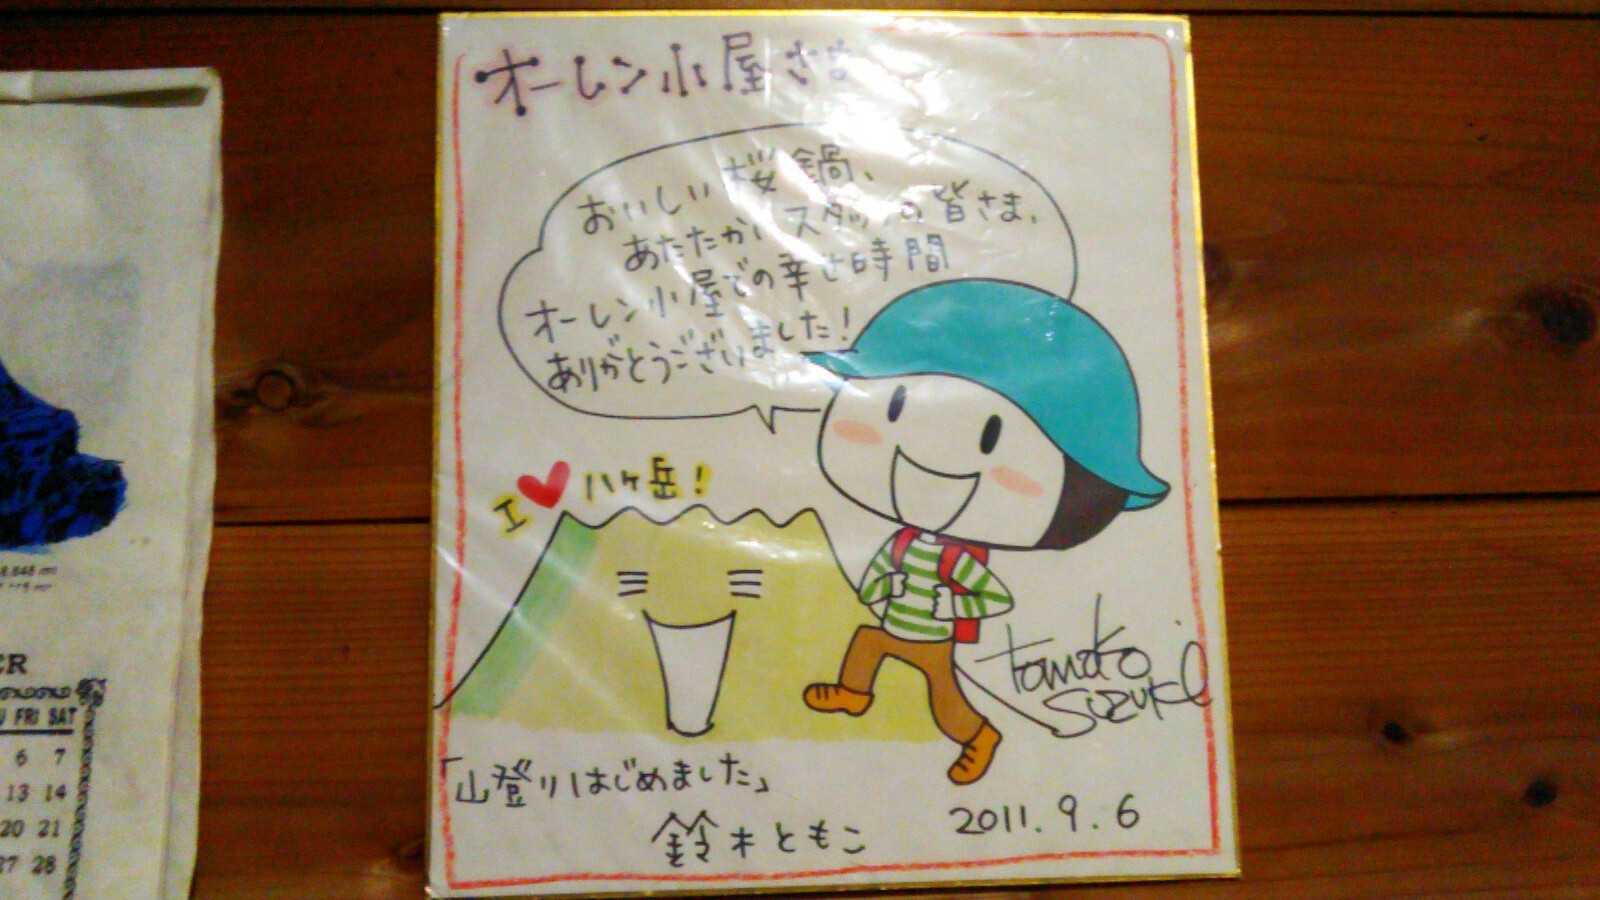 オーレン小屋さま
おいしい桜鍋、
あたたかいスタッフの皆さま、
オーレン小屋での幸せ時間
ありがとうございました!
I ♥ 八ヶ岳!
tomoko
suzuki
「山登りはじめました」
鈴木ともこ
2011.9.6
ER
FRI SAT
6 7
13 14
20 21
27 28